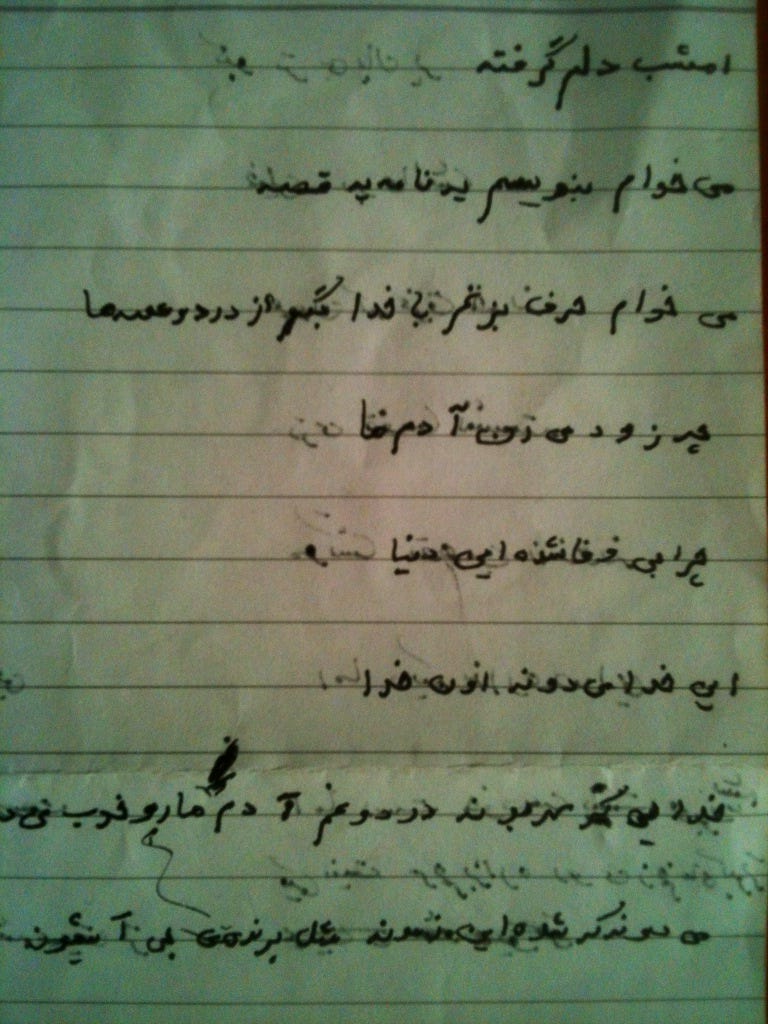 امشب دلم گرفته
می خوام بنویسم یه نامه یه قصه
می خوام حرف بزنم با خدا بگم از درد و غصه ها
چه زود می رن آدم ها
چرا بی وفا شده این دنیا
این خدا می دونه اون خدا
خدایی که مهربونه درد و غم آدم ها رو خوب می
می دونه که شده این خونه مثل پرنده ی بی آشیونه